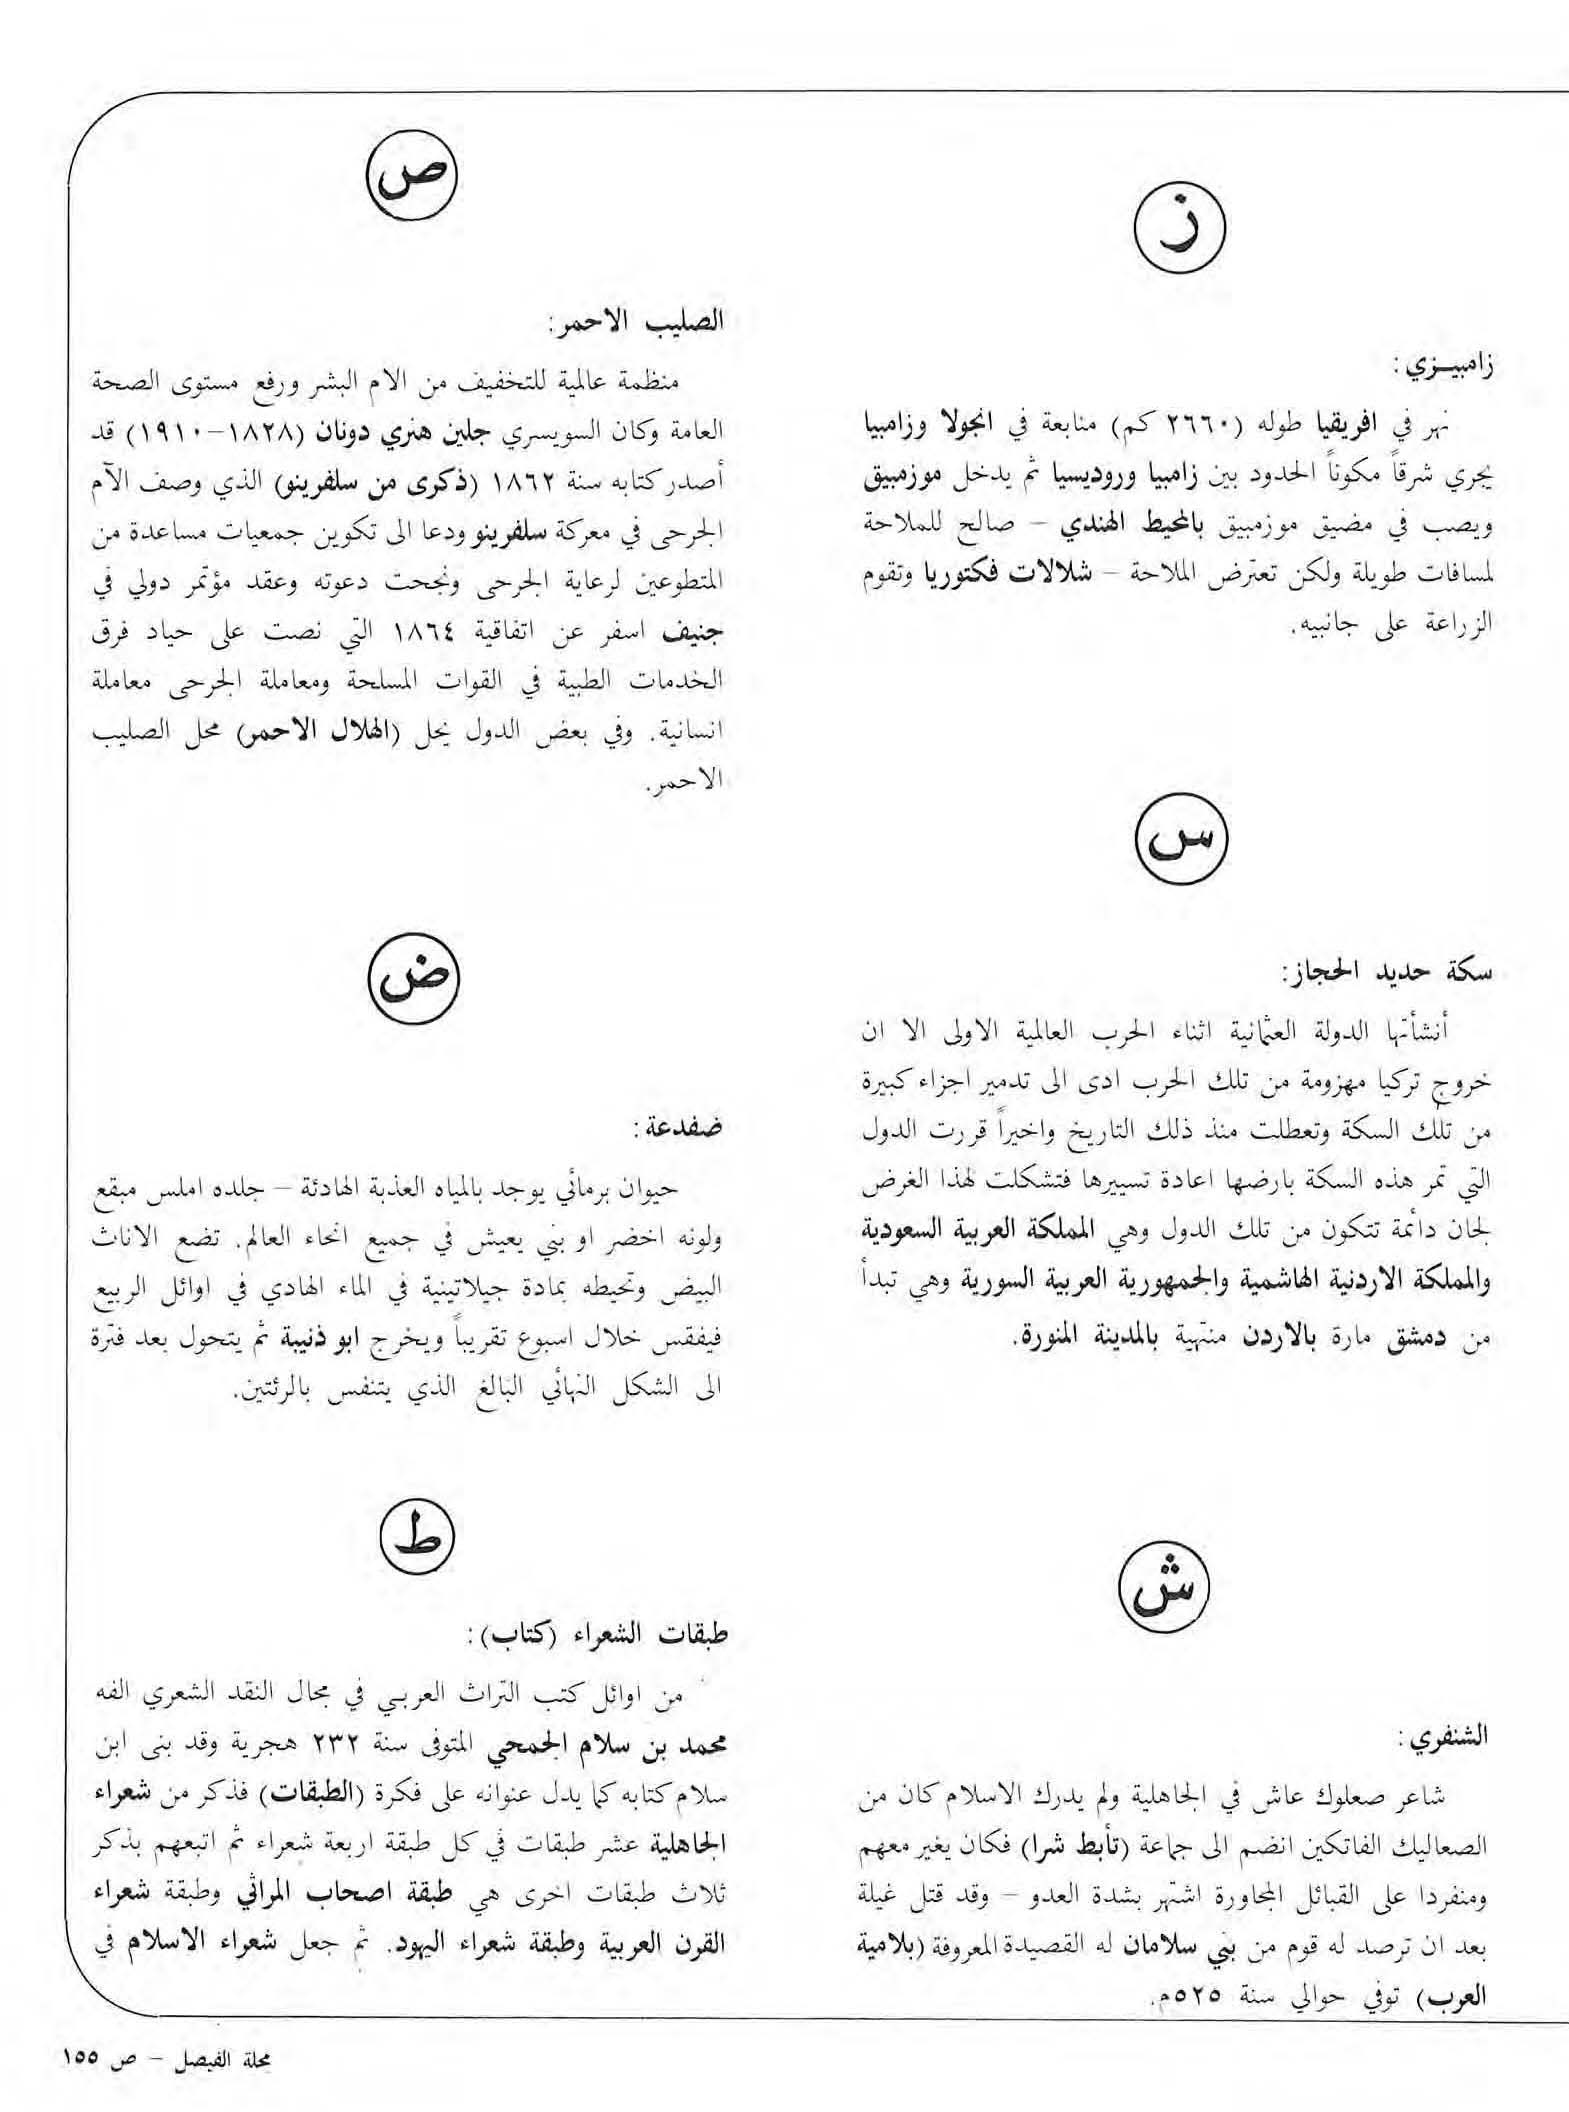 ز
زامبيـزي:
نهر في افريقيا طوله (٢٦٦٠ كم) منابعة في انجولا وزامبيا
يجري شرقاً مكوناً الحدود بين زامبيا وروديسيا ثم يدخل موزمبيق
ويصب في مضيق موزمبيق بالمحيط الهندي – صالح للملاحة
لمسافات طويلة ولكن تعترض الملاحة – شلالات فكتوريا وتقوم
الزراعة على جانبيه.
س
سكة حديد الحجاز:
أنشأتها الدولة العثمانية اثناء الحرب العالمية الاولى الا ان
خروج تركيا مهزومة من تلك الحرب ادى الى تدمير اجزاء كبيرة
من تلك السكة وتعطلت منذ ذلك التاريخ واخيراً قررت الدول
التي تمر هذه السكة بارضها اعادة تسييرها فتشكلت لهذا الغرض
لجان دائمة تتكون من تلك الدول وهي المملكة العربية السعودية
والمملكة الاردنية الهاشمية والجمهورية العربية السورية وهي تبدأ
من دمشق مارة بالاردن منتهية بالمدينة المنورة.
ش
الشنفري:
شاعر صعلوك عاش في الجاهلية ولم يدرك الاسلام كان من
الصعاليك الفاتكين انضم الى جماعة (تأبط شرا) فكان يغير معهم
ومنفردا على القبائل المجاورة اشتهر بشدة العدو – وقد قتل غيلة
بعد ان ترصد له قوم من بني سلامان له القصيدة المعروفة (بلامية
العرب) توفي حوالي سنة ٥٢٥م.
ص
الصليب الاحمر:
منظمة عالمية للتخفيف من الام البشر ورفع مستوى الصحة
العامة وكان السويسري جلين هنري دونان (١٨٢٨–١٩١٠) قد
أصدر كتابه سنة ١٨٦٢ (ذكرى من سلفرينو) الذي وصف الآم
الجرحى في معركة سلفرينو ودعا الى تكوين جمعيات مساعدة من
المتطوعين لرعاية الجرحى ونجحت دعوته وعقد مؤتمر دولي في
جنيف اسفر عن اتفاقية ١٨٦٤ التي نصت على حياد فرق
الخدمات الطبية في القوات المسلحة ومعاملة الجرحى معاملة
انسانية. وفي بعض الدول يحل (الهلال الاحمر) محل الصليب
الاحمر.
ض
ضفدعة:
حيوان برمائي يوجد بالمياه العذبة الهادئة – جلده املس مبقع
ولونه اخضر او بني يعيش في جميع انحاء العالم. تضع الاناث
البيض وتحيطه بمادة جيلاتينية في الماء الهادي في اوائل الربيع
فيفقس خلال اسبوع تقريباً ويخرج ابو ذنيبة ثم يتحول بعد فترة
الى الشكل النهائي البالغ الذي يتنفس بالرئتين.
ط
طبقات الشعراء (كتاب):
من اوائل كتب التراث العربي في مجال النقد الشعري الفه
محمد بن سلام الجمحي المتوفى سنة ٢٣٢ هجرية وقد بنى ابن
سلام كتابه كما يدل عنوانه على فكرة (الطبقات) فذكر من شعراء
الجاهلية عشر طبقات في كل طبقة اربعة شعراء ثم اتبعهم بذكر
ثلاث طبقات اخرى هي طبقة اصحاب المراثي وطبقة شعراء
القرن العربية وطبقة شعراء اليهود. ثم جعل شعراء الاسلام في
مجلة الفيصل – ص ١٥٥